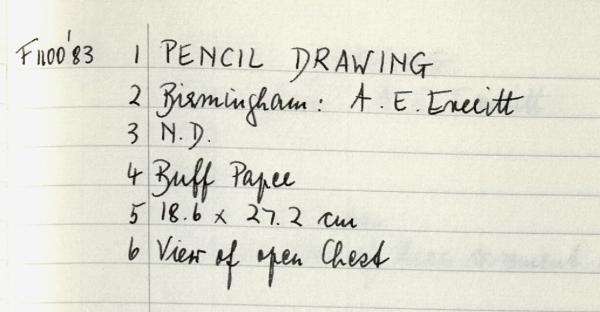 F1100'83 1 PENCIL DRAWING
2 Birmingham: A. E. Everitt
3 N.D.
4 Buff Paper
5 18.6 x 27.2 cm
6 View of open Chest